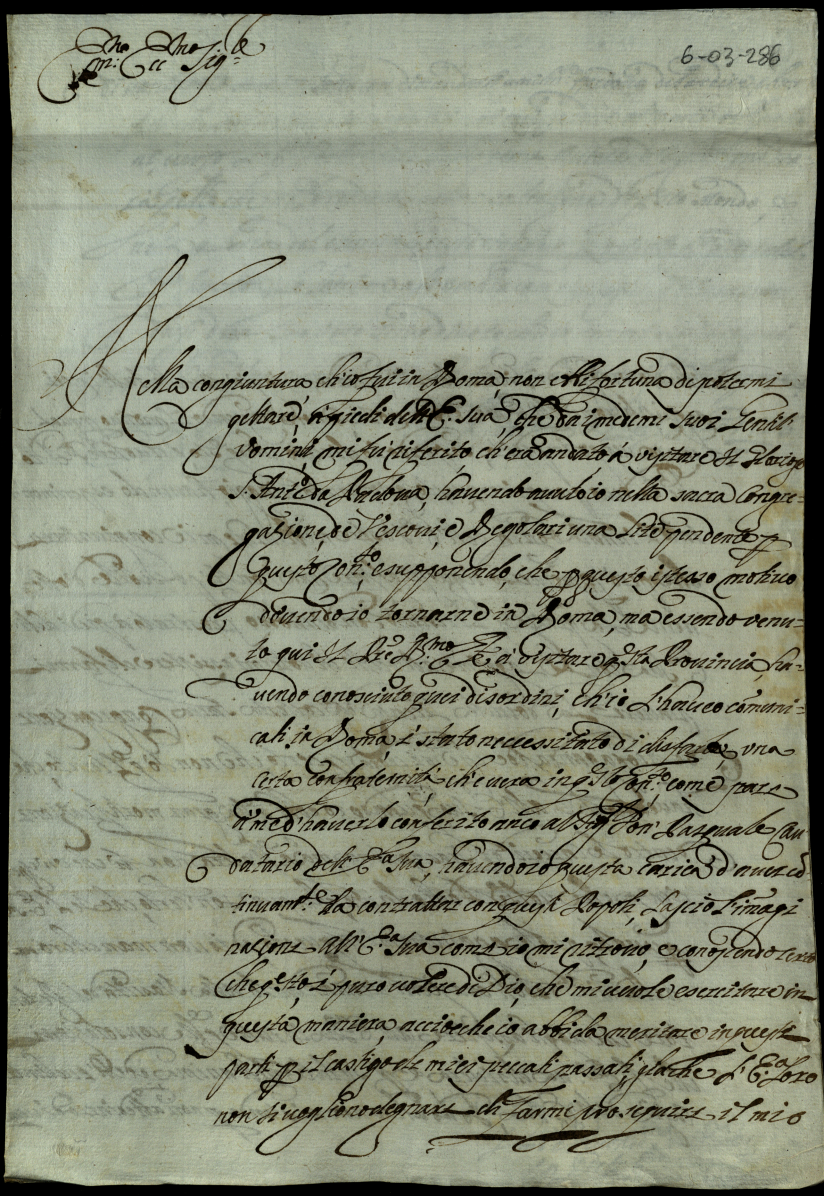 6-03-286
Em:mo e R:mo Sig:re
Nella congiuntura ch'io fui in Roma, non ebbi fortuna di potermi
gettare a piedi dell'E. Sua, che da i medemi suoi Gentil
uomini mi fu riferito ch'era andato a visitare il Glorioso
S. Ant.o da Padova, havendo avuto io nella sacra Congre=
gazione de Vescovi, e Regolari una lite pendente p
questo Con:to, e supponendo, che p questo istesso motivo
dovendo io tornarne in Roma, ma essendo venu=
to qui il Pre R:mo a visitare q.sta Provincia, ha=
vendo conosciuto quei disordini, ch'io l'haveo comuni=
cati in Roma, è stato necessitato di disfare una
certa confraternità che v'era in q.sto Con:to, come pare
a me d'haverlo conferito anco al Sig.r Don Pasquale Cau
datario dell'E.a Sua, havendo io questa carica d'aver cõ
tinuam.te da contrattar con questi Popoli, lascio l'imagi
nazione all'E.a Sua come io mi ritrovo, e conoscendo certo
che q.sto è puro volere di Dio, che mi vuole esercitare in
questa maniera, acciocche io abbi da meritare in questi
parti p il castigo de miei peccati passati, giache l'E.a Loro
non si vogliono degnare di farmi proseguire il mio